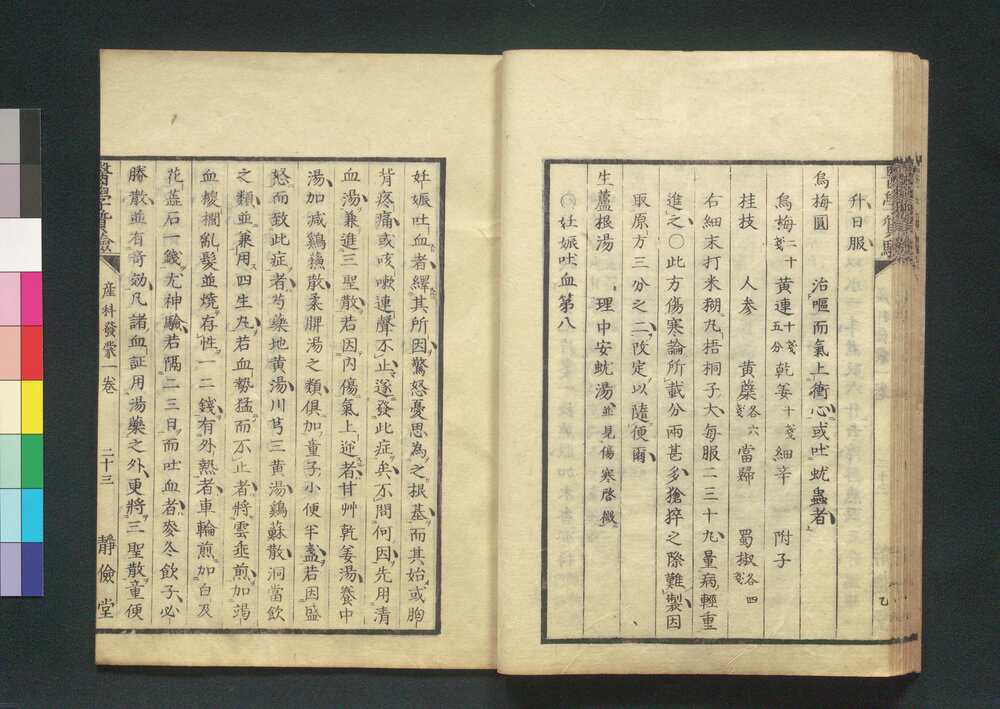 升日服
烏梅圓 治嘔而氣上衝心或吐蚘蟲者
烏梅二十箋 黄連十箋五分 乾姜十箋 細辛 附子
桂枝 人参 黄蘗各六箋 當歸 蜀椒各四箋
右細末打米糊丸梧桐子大每服二三十丸量病輕重
進之〇此方傷寒論所載分兩甚多搶猝之際難製因
取原方三分之二改定以隨便爾
生蘆根湯 理中安蚘湯並見傷寒啓微
〇妊娠吐血第八
妊娠吐血者繹其所因驚怒憂思為之根基而其始或胸
背疼痛或咳嗽連聲不止遂發此症矣不問何因先用清
血湯兼進三聖散若因内傷氣上逆者甘艸乾姜湯養中
湯加減鷄蘓散柔脾湯之類俱加童子小便半盞若因盛
怒而致此症者芍藥地黄湯川芎三黄湯鷄蘇散洞當飲
之類並兼用四生丸若血勢猛而不止者將雲埀煎加渴
血椶櫚亂髪並燒存性一二錢有外熱者車輪煎加白及
花蕋石一錢尤神驗若隔二三日而吐血者麥冬飲子必
勝散並有奇効凡諸血証用湯藥之外更將三聖散童便
産科發蒙一卷 二十三 靜儉堂